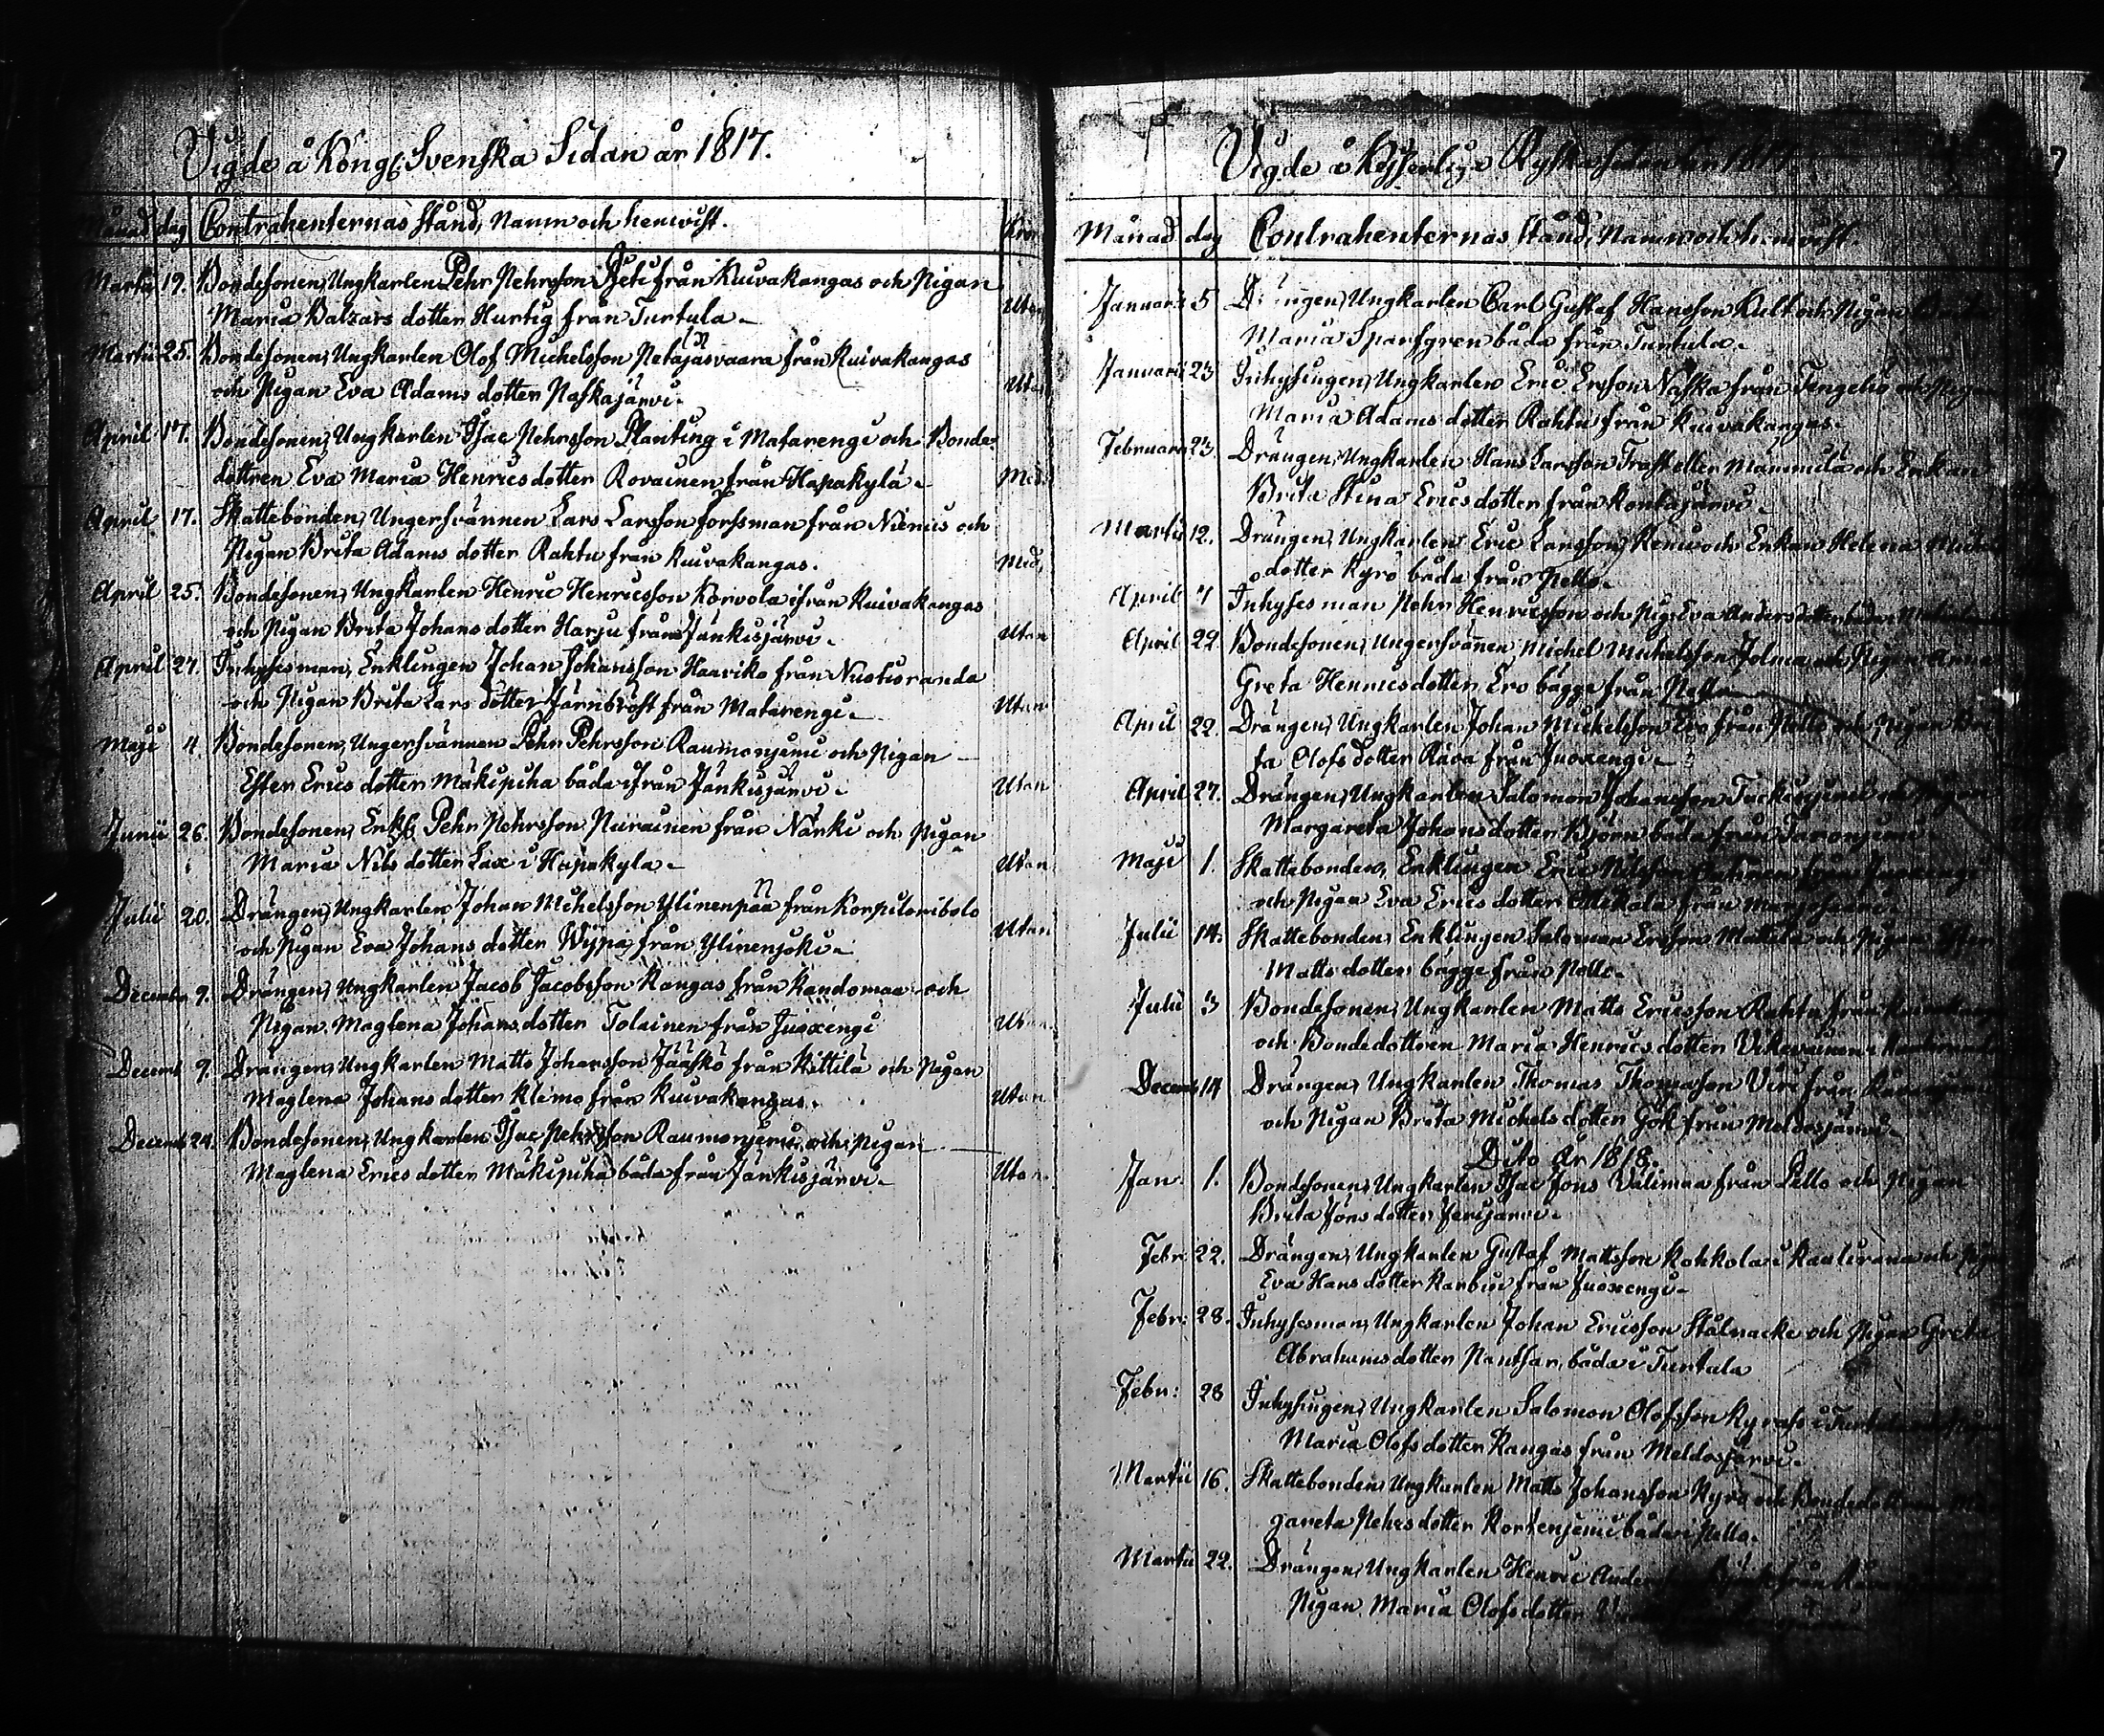 Vigde å Kongl. Svenska Sidan år 1817.
Månad dag Contrahenternas stånd, Namn och hemvist. Kron
Martii 19. Bondesonen, Ungkarlen Pehr Pehrsson Peti från Kuivakangas och Pigan
Maria Balzars dotter Hurtig från Turtula. Utan
Martii 25. Bondesonen, Ungkarlen Olof Michelsson Netäjäsvaara från Kuivakangas
och Pigan Eva Adams dotter Paskajärvi. Utan
April 17. Bondesonen, Ungkarlen Isac Pehrsson Planting i Matarengi och Bonde
dottren Eva Maria Henrics dotter Rovainen från Hapakylä. Med
April 17. Skattebonden, Ungersvännen Lars Larsson Forssman från Niemis och
Pigan Brita Adams dotter Rahtu från Kuivakangas. Med
April 25. Bondesonen, Ungkarlen Henric Henricsson Korvola ifrån Kuivakangas
och Pigan Brita Johans dotter Harju från Jänkisjärvi. Utan
April 27. Inhysesman, Enklingen Johan Johansson Haariko från Nuotioranda
och Pigan Brita Lars dotter Järnbröst från Matarengi. Utan
Maji 4 Bondesonen, Ungersvännen Pehr Pehrsson Raumonjemi och Pigan
Ester Erics dotter Mäkipiha båda ifrån Jänkisjärvi. Utan
Junii 26. Bondesonen, Enkl. Pehr Pehrsson Niirainen från Närki och Pigan
Maria Nils dotter Lax i Hapakyla. Utan
Julii 20. Drängen, Ungkarlen Johan Michelsson Ylinenpää från Korpilombolo
och Pigan Eva Johans dotter Wypä från Ylinenjoki. Utan
December 9. Drängen, Ungkarlen Jacob Jacobsson Kangas från Kandomaa och
Pigan Maglena Johans dotter Tolainen från Juoxengi Utan
Decemb 9. Drängen, Ungkarlen Matts Johansson Jääskö från Kittilä och Pigan
Maglena Johans dotter Klimo från Kuivakangas. Utan
Decemb 24. Bondesonen, Ungkarlen Isac Pehrsson Raumonjemi och Pigan
Maglena Erics dotter Mäkipiha båda från Jänkisjärvi. Utan
Vigde å Kejserlige Ryska sidan år 1817.
Månad dag Contrahenternas stånd, Namn och hemvist.
Januarii 5 Drängen, Ungkarlen Carl Gustaf Hansson Kult och Pigan
Maria Sparfgren båda från Turtula.
Januarii 23 Inhysingen, Ungkarlen Eric Ersson Vaska från Tengeliö och Pigan
Maria Adams dotter Rahtu från Kuivakangas.
Februarii 23 Drängen, Ungkarlen Hans Larsson Trast eller Mämmilä och Enkan
Brita Stina Erics dotter från Konkajärvi.
Martii 12. Drängen, Ungkarlen Eric Larsson Kemi och Enkan Helena
dotter Kyrö båda från Pello.
April 7 Inhyses man Pehr Henricsson och Pig. Eva Anders dotter båda
April 22 Bondesonen, Ungersvänen, Michel Michelsson Jolma och Pigan Anna
Greta Henrics dotter Ero bägge från Pello
April 22. Drängen, Ungkarlen Johan Michelsson Ero från Pello och Pigan
ta Olofs dotter Räva från Juoxengi.
April 27. Drängen, Ungkarlen Salomon Johansson och Pigan
Margareta Johans dotter Björn båda från
Maji 1. Skattebonden, Enklingen Eric Nilsson från Juoxengi
och Pigan Eva Erics dotter från
Julii 14. Skattebonden, Enklingen Salomon Ersson Mattila och Pigan Ester
Matts dotter bägge från Pello.
Julii 3 Bondesonen, Ungkarlen Matts Ericsson Rahtu från Kuivakangas
och Bondedottren Maria Henrics dotter
Decemb 14 Drängen, Ungkarlen Thomas Thomasson Viri från
och Pigan Brita Michels dotter Gök från Meldosjärvi.
Dito År 1818.
Jan. 1. Bondesonen, Ungkarlen Isac Jöns Välimaa från Pello och Pigan
Brita Jöns dotter Jerijärvi.
Febr. 22. Drängen, Ungkarlen Gustaf Mattsson Kohkola i Kaulirana och Pigan
Eva Hans dotter Karbin från Juoxengi.
Febr: 28. Inhysesman, Ungkarlen Johan Ericsson Stålnacke och Pigan Greta
Abrahams dotter Pantsar, båda i Turtula
Febr: 28 Inhysingen, Ungkarlen Salomon Olofsson i Turtula och Pigan
Maria Olofs dotter Kangas från Meldosjärvi.
Martii 16. Skattebonden, Ungkarlen Matts Johansson Kyrö och Bondedottren Mar
gareta Pehrs dotter Kortenjemi båda i Pello.
Martii 22. Drängen, Ungkarlen Henric från
Pigan Maria Olofs dotter